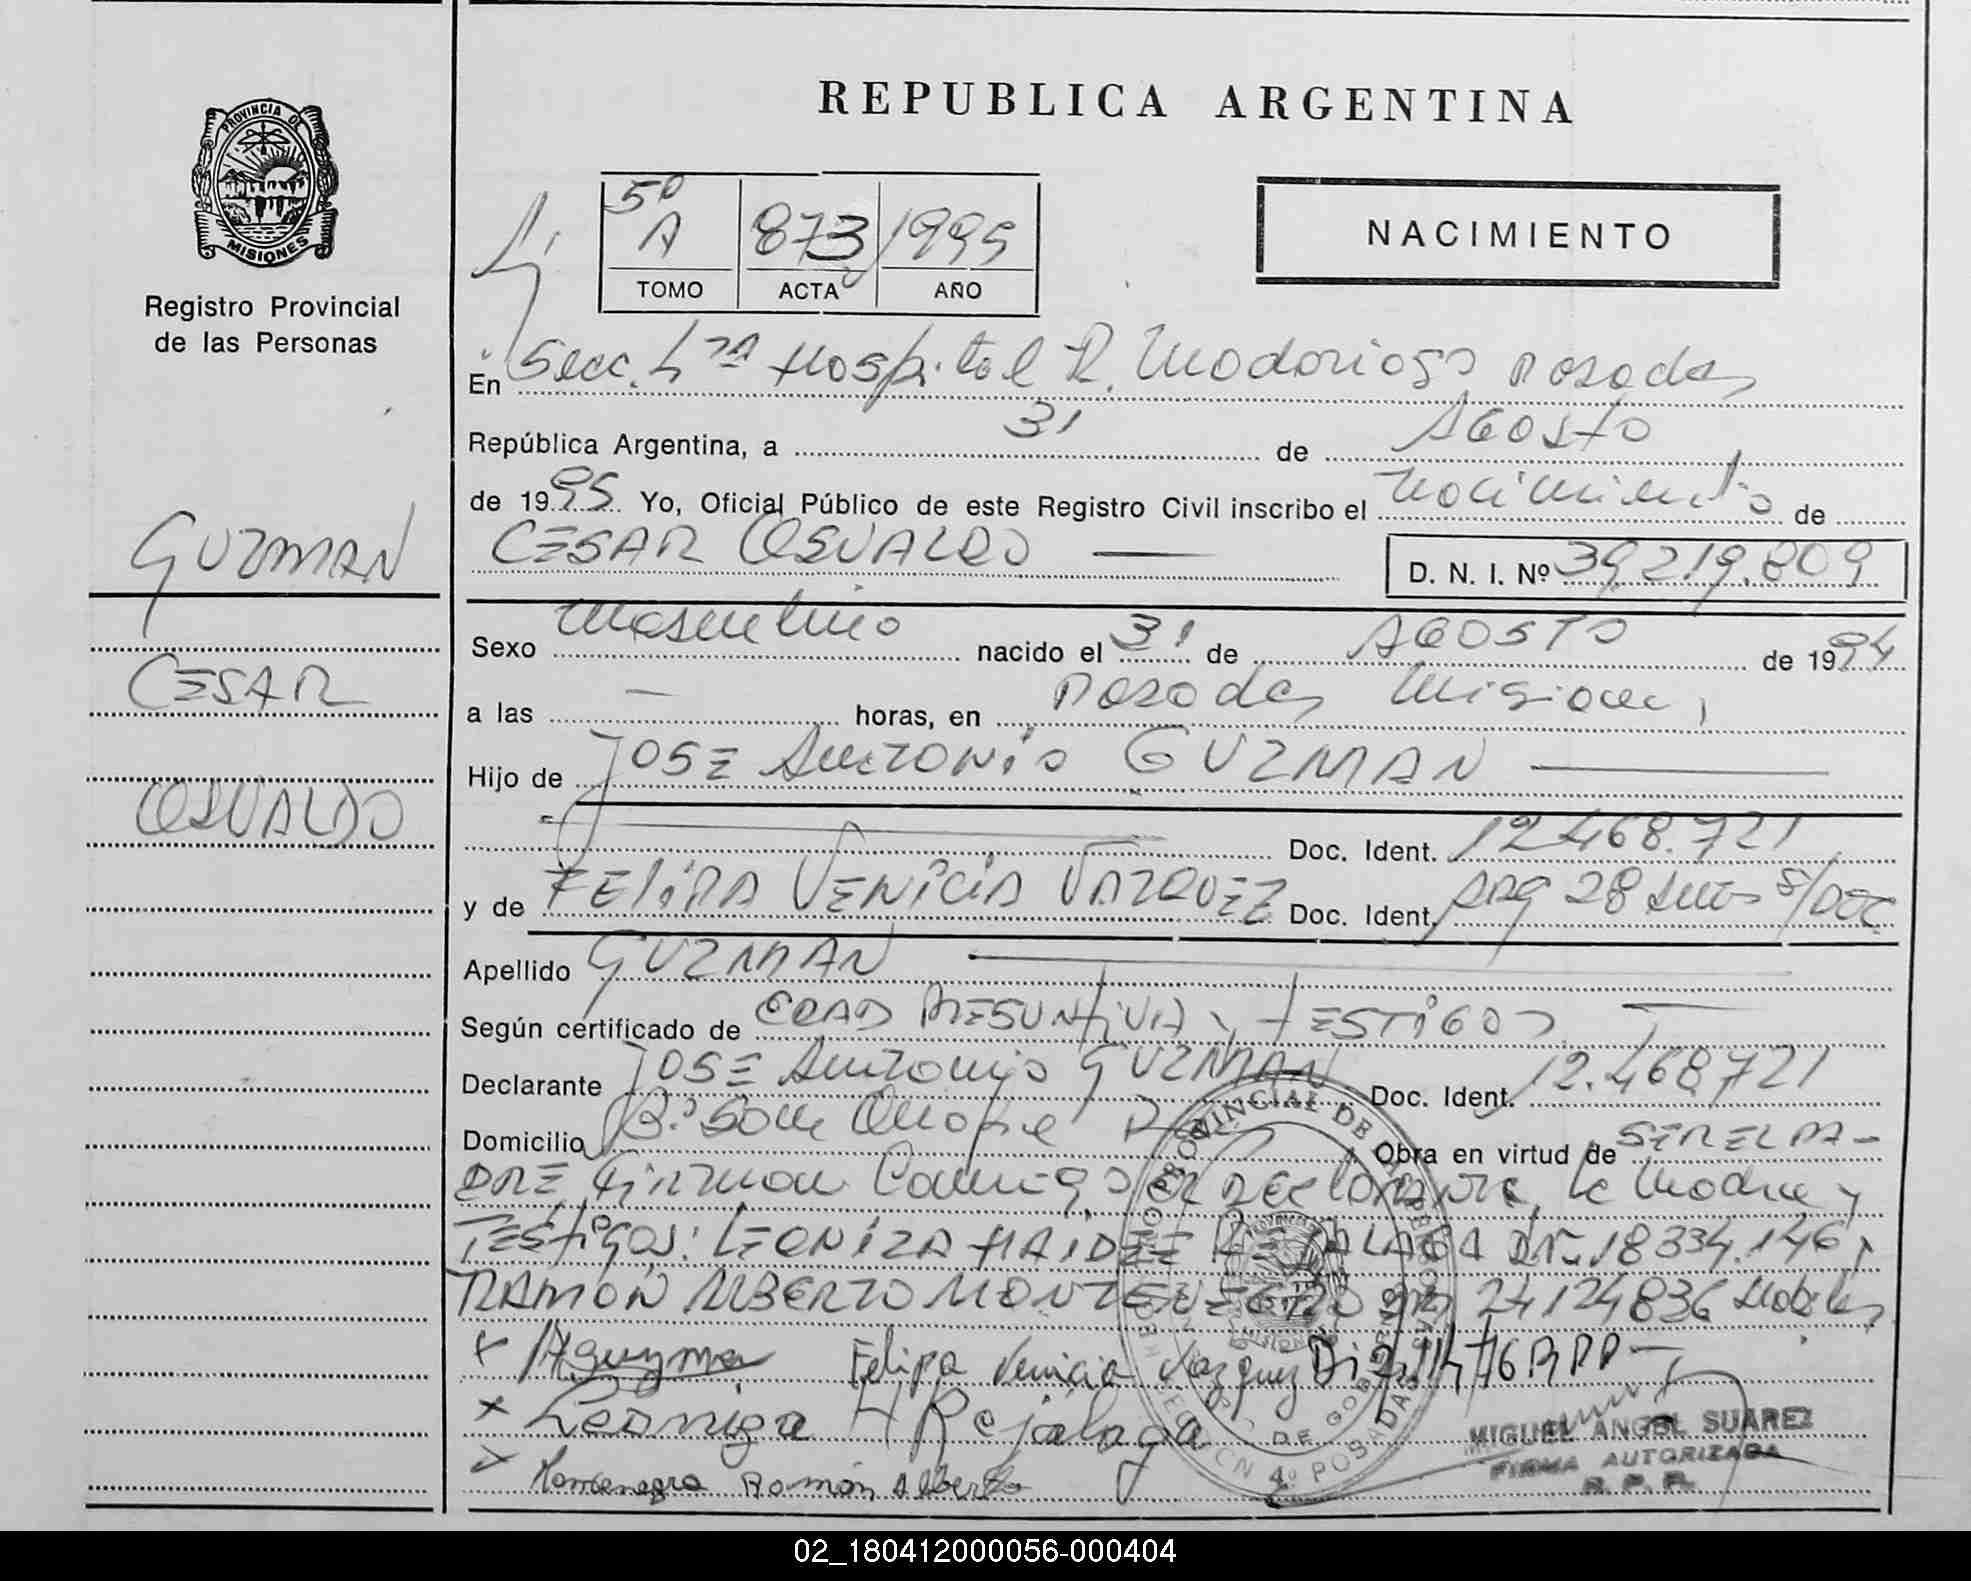 REPUBLICA ARGENTINA
PROVINCIA DE
MISIONES
Registro Provincial
de las Personas
5º
A 873 1995
TOMO ACTA AÑO
NACIMIENTO
En Secc. 4ta Hospital R. Madariaga Posadas
República Argentina, a 31 de AGOSTO
de 1995 Yo, Oficial Público de este Registro Civil inscribo el nacimiento de
CESAR OSVALDO
D. N. I. Nº 39.219.809
GUZMAN
CESAR
OSVALDO
Sexo masculino nacido el 31 de AGOSTO de 1994
a las — horas, en Posadas Misiones,
Hijo de JOSE Antonio GUZMAN
Doc. Ident. 12.468.721
y de FELIPA VENICIA VAZQUEZ Doc. Ident. Arg 28 años S/DOC
Apellido GUZMAN
Según certificado de EDAD PRESUNTIVA y TESTIGOS
Declarante JOSE Antonio GUZMAN Doc. Ident. 12.468.721
Domicilio Bº Obra en virtud de SER EL PA-
DRE, Firman Conmigo el Declarante, la Madre y
TESTIGOS: LEONIZA HAIDEE REJALAGA 18334.146,
RAMON ALBERTO MONTENEGRO 24124836
x Aguzman Felipa Venicia Vazquez
x Leoniza H Rejalaga
x Montenegro Ramón Alberto
MIGUEL ANGEL SUAREZ
FIRMA AUTORIZADA
R. P. P.
02_180412000056-000404